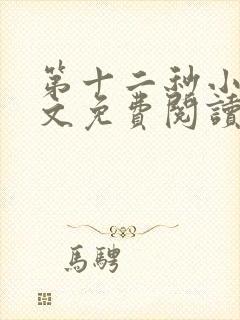 第十二秒小
文免費閱讀
馬騁